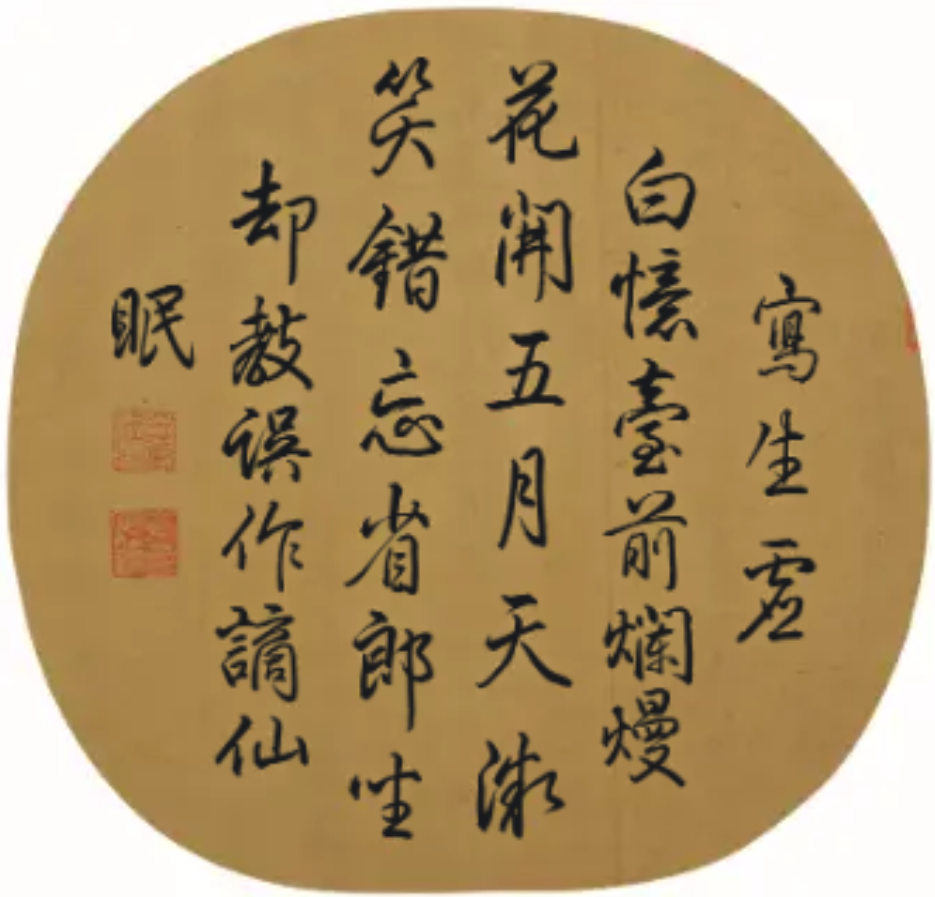 寫生虛
白憶臺前爛熳
花開五月天漪
笑錯忘省郎坐
却教誤作謫仙
眠